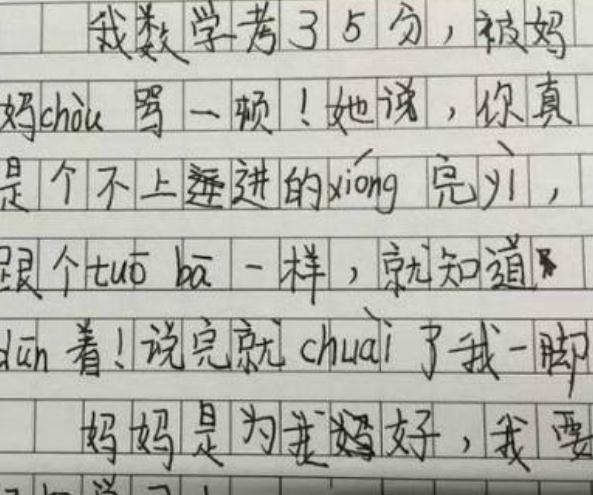 我数学考35分，被妈
妈chòu骂一顿！她说，你真
是个不上进的xióng完yì，
跟个tuō bā一样，就知道
dūn着！说完就chuài了我一脚
妈妈是为我好，我要